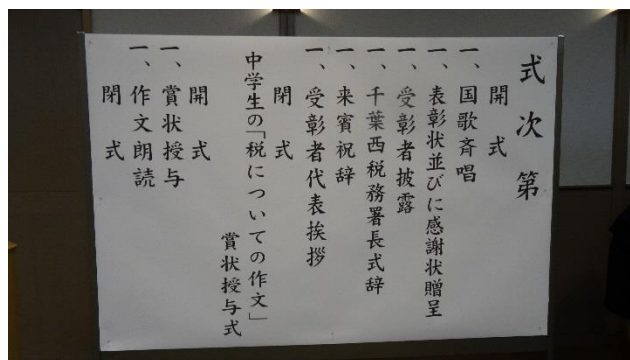 式次第
開式
一、国歌斉唱
一、表彰状並びに感謝状贈呈
一、受彰者披露
一、千葉西税務署長式辞
一、来賓祝辞
一、受彰者代表挨拶
閉式
中学生の「税についての作文」
賞状授与式
開式
一、賞状授与
一、作文朗読
閉式